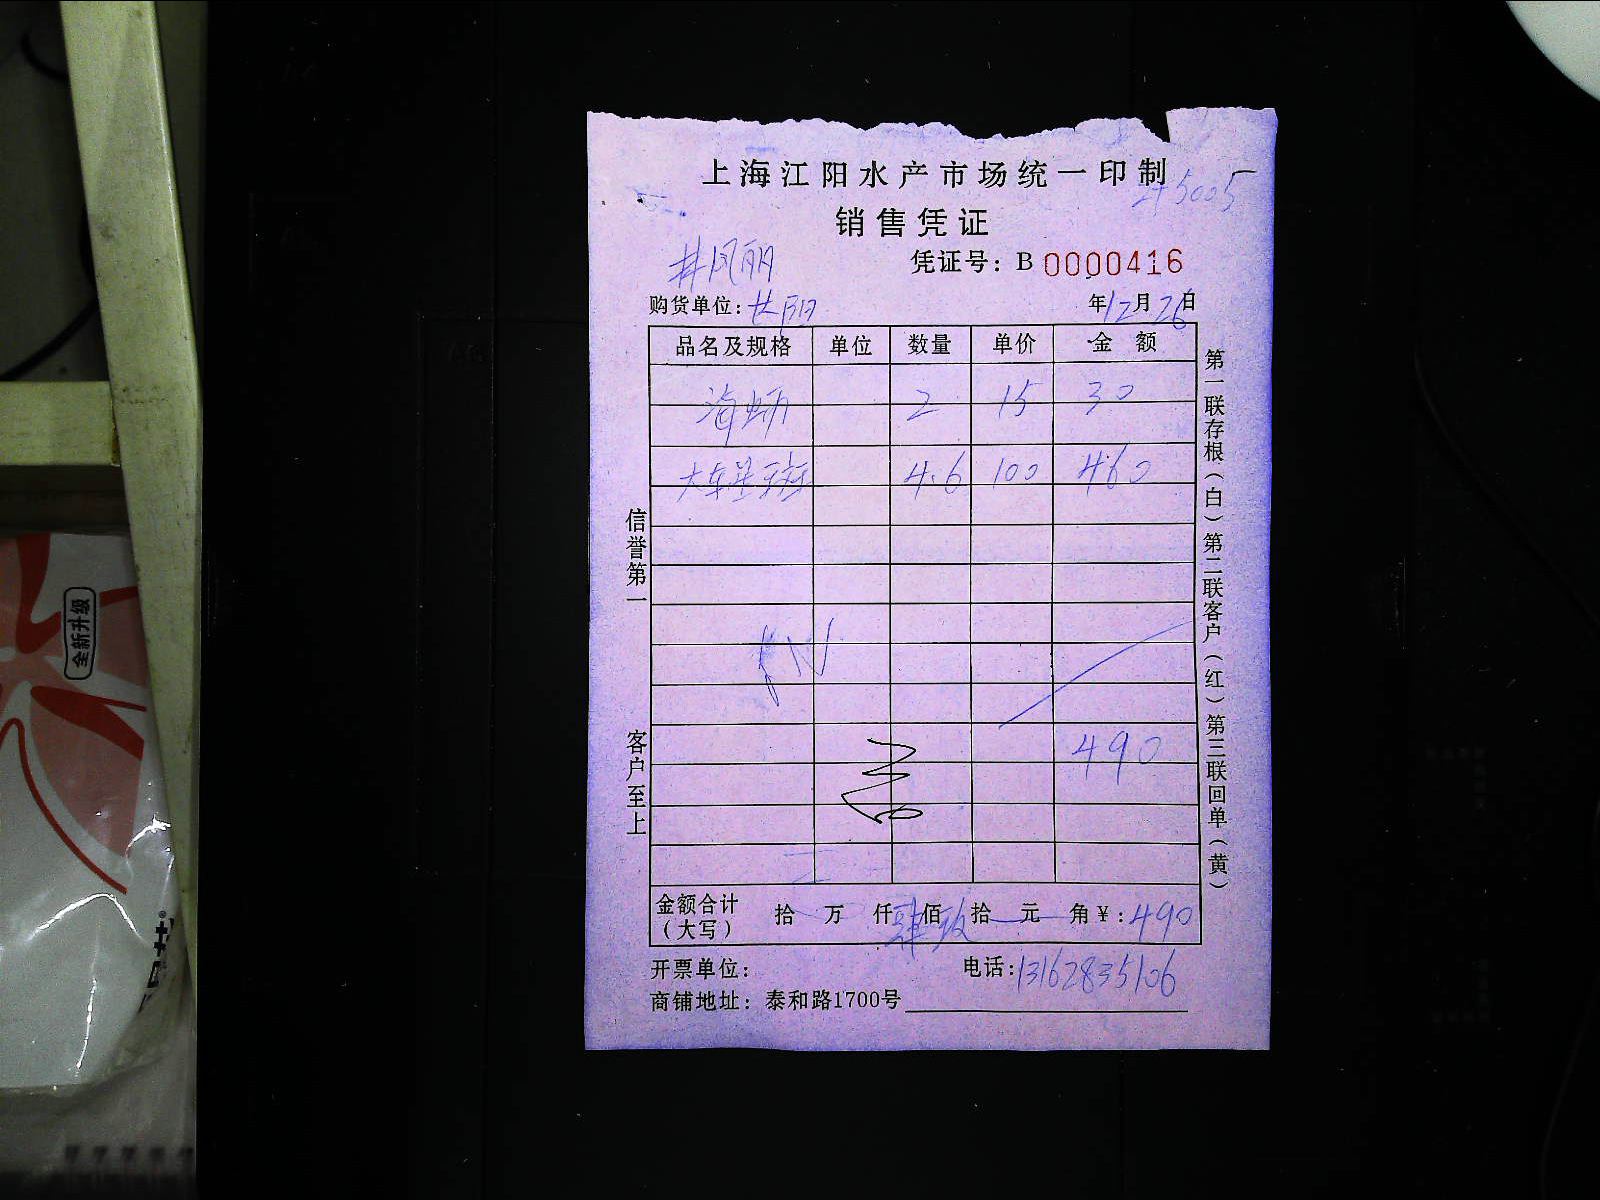 上海江阳水产市场统一印制
45005
销售凭证
凭证号：B 0000416
井凤丽
购货单位：
年12月26日
品名及规格 单位 数量 单价 金额
海蛎 2 15 30
4.6 100 460
490
金额合计（大写） 拾 万 仟肆佰玖拾 元 角￥：490
开票单位：
电话：13162835106
商铺地址：泰和路1700号
信誉第一
客户至上
第一联存根（白）第二联客户（红）第三联回单（黄）
全新升级